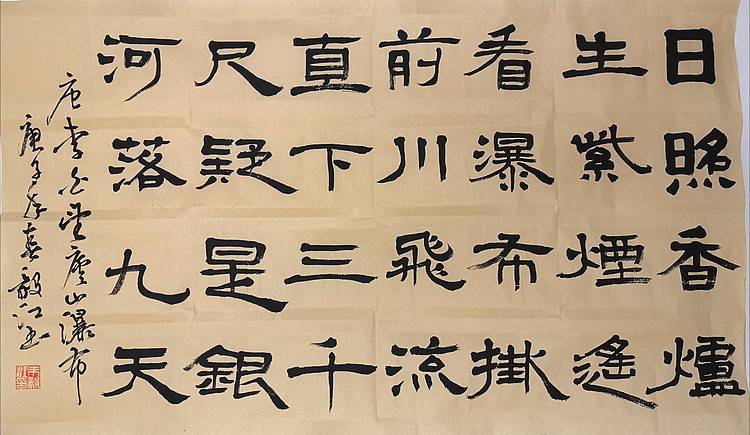 日照香爐
生紫煙遙
看瀑布掛
前川飛流
直下三千
尺疑是銀
河落九天
唐李白望廬山瀑布
庚子年春毅江书